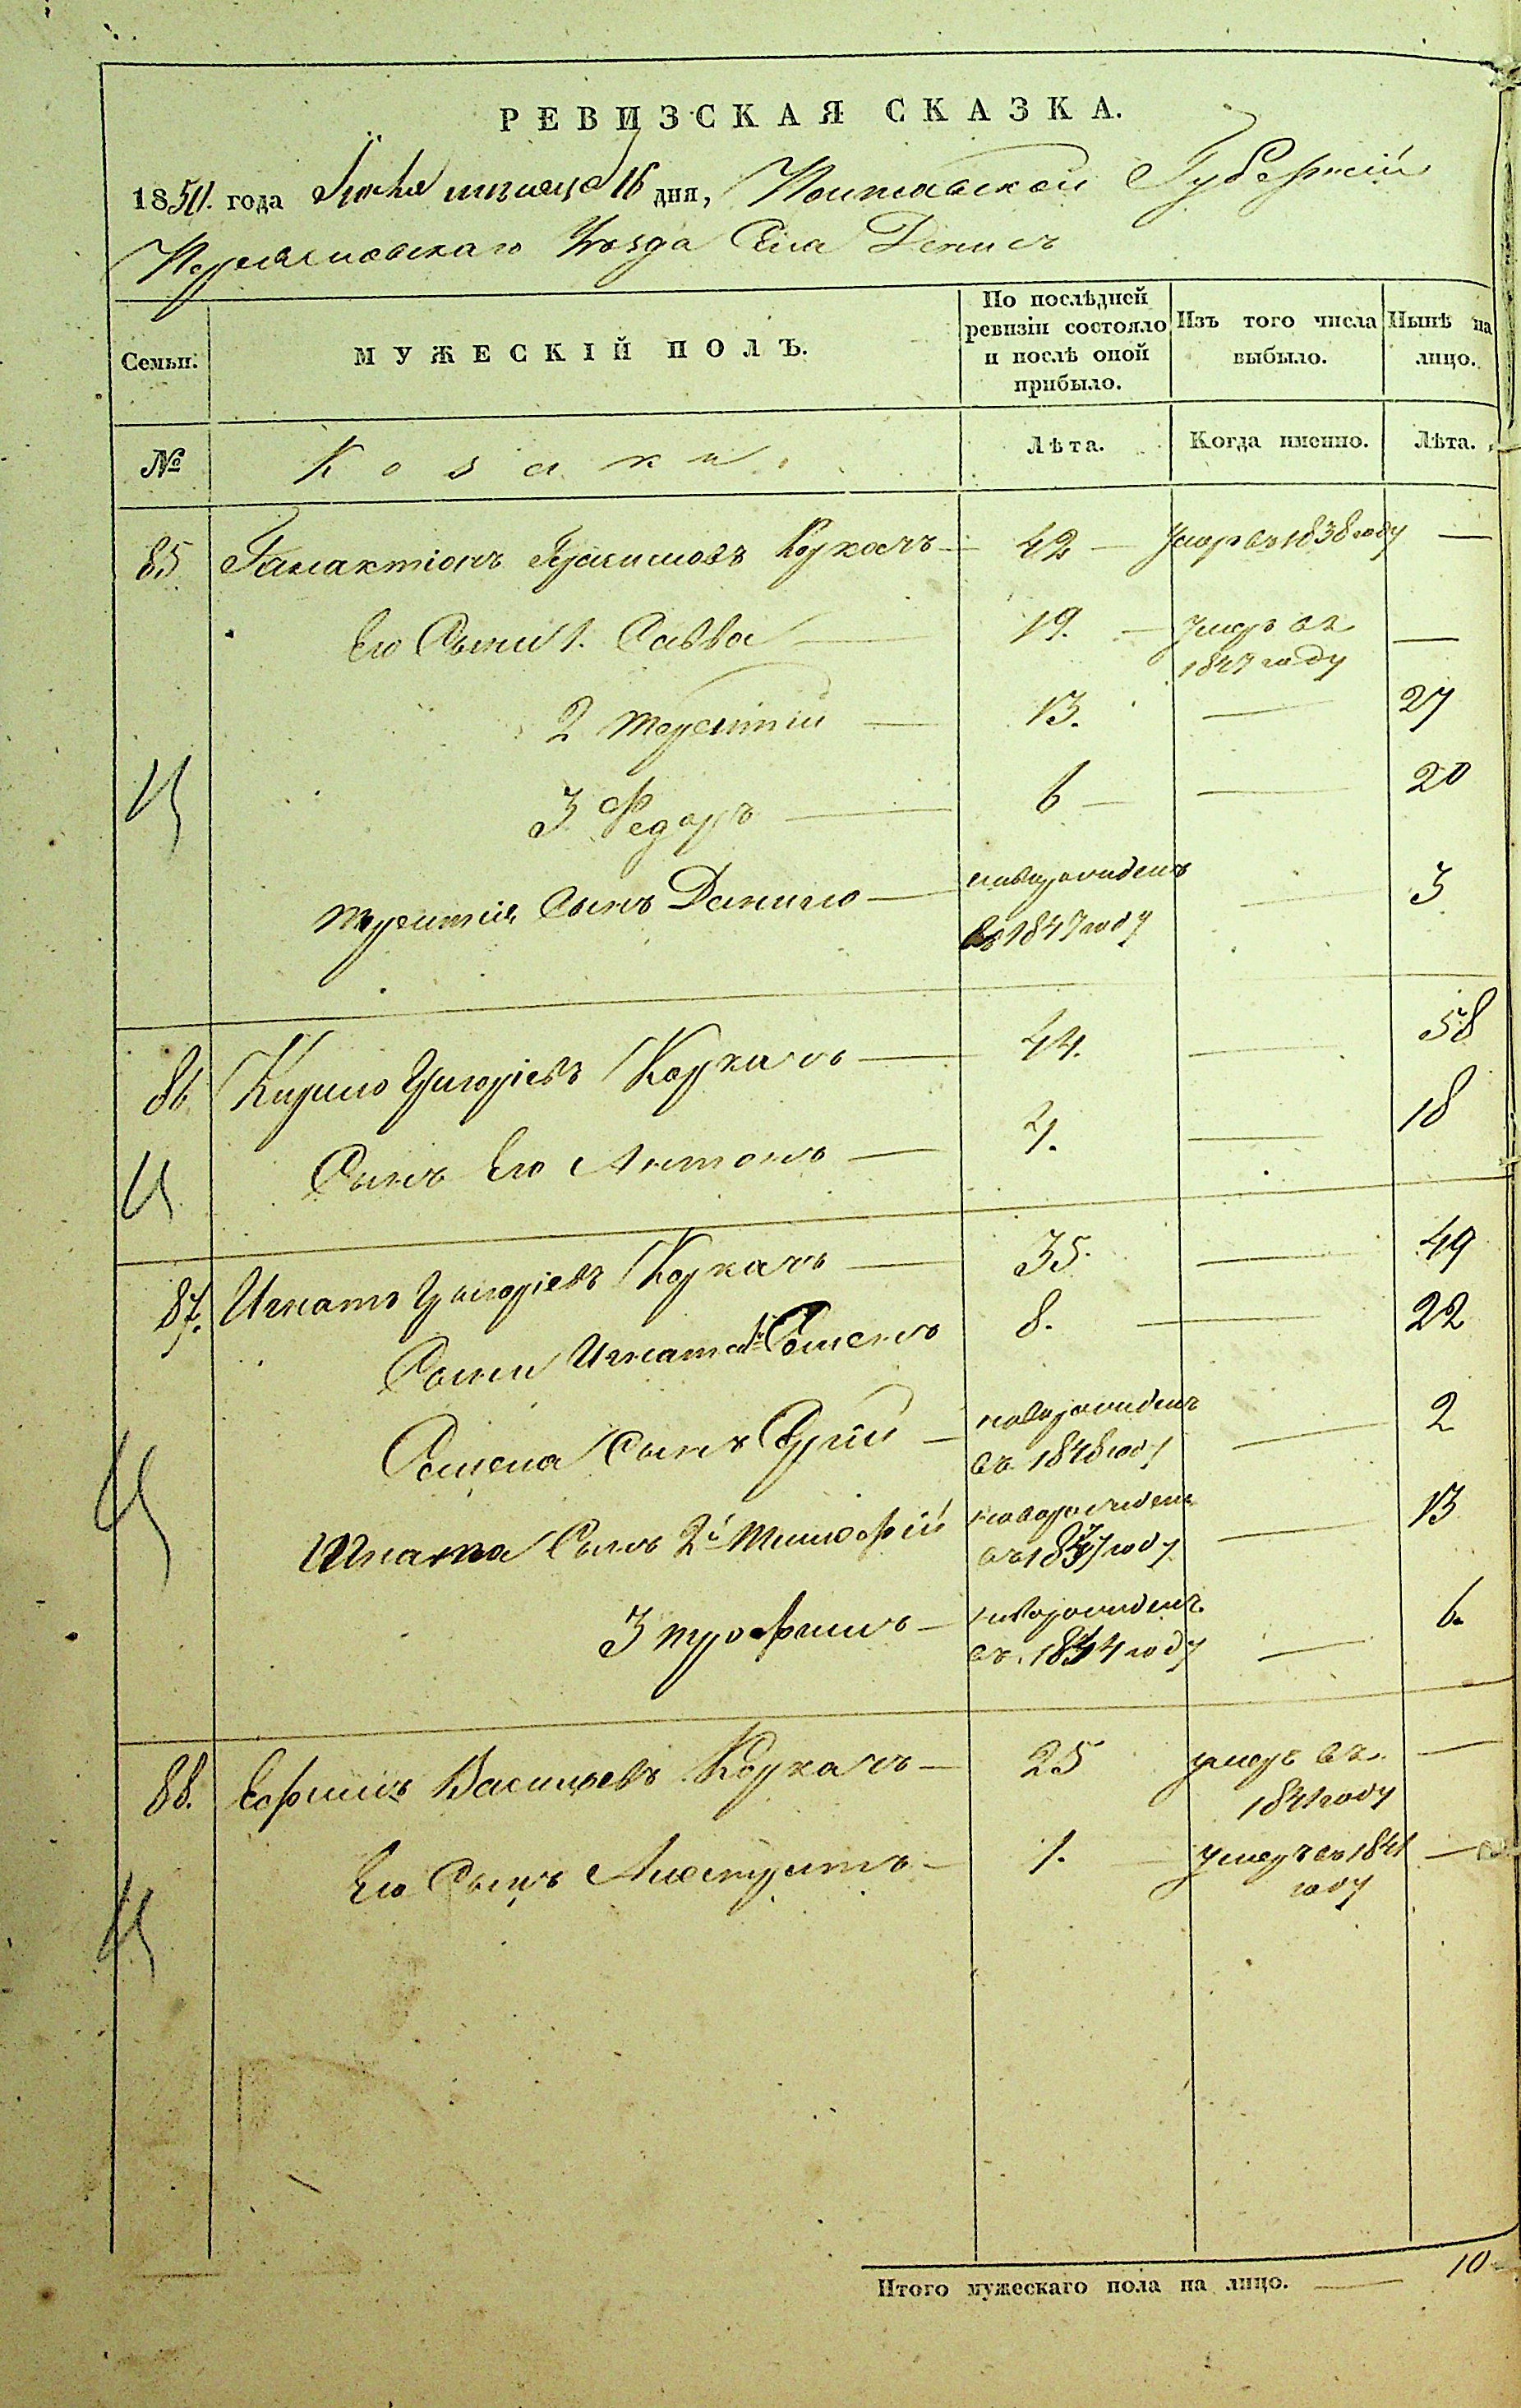 РЕВИЗСКАЯ СКАЗКА.
1850. года Іюня мѣсяца 16 дня, Полтавской Губерніи
Переяславскаго Уѣзда Села Денисъ
Семьи. МУЖЕСКІЙ ПОЛЪ. По послѣдней ревизіи состояло и послѣ оной прибыло. Изъ того числа выбыло. Нынѣ на лицо.
№ Козаки. Лѣта. Когда именно. Лѣта.
85 Галактіонъ Герасимовъ Коркачъ — 42 — Умеръ въ 1838 году —
Его Сыни 1. Савва — 19. — Умеръ въ 1847 году —
2 Терентій — 13. — 27
3 Федоръ — 6 — — 20
Терентія Сынъ Данило — новорожденъ въ 1847 году — 3
86 Кирило Григорієвъ Коркачъ — 44. — 58
Сынъ Его Антонъ — 4. — 18
87. Игнатъ Григорієвъ Коркачъ — 35. — 49
Сыни Игната 1й Семенъ 8. — 22
Семена Сынъ Юрій — новорожденъ въ 1848 году — 2
Игната Сынъ 2й Тимофій новорожденъ въ 1837 году — 13
3 Трофимъ — новорожденъ въ 1844 году — 6.
88. Ефимъ Васильевъ Коркачъ — 25 умеръ въ 1841 году —
Его Сынъ — 1. — умеръ въ 1841 году —
Итого мужескаго пола на лицо. — 10